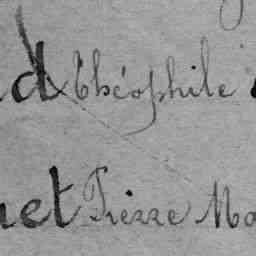 d Théophile
et Pierre Ma